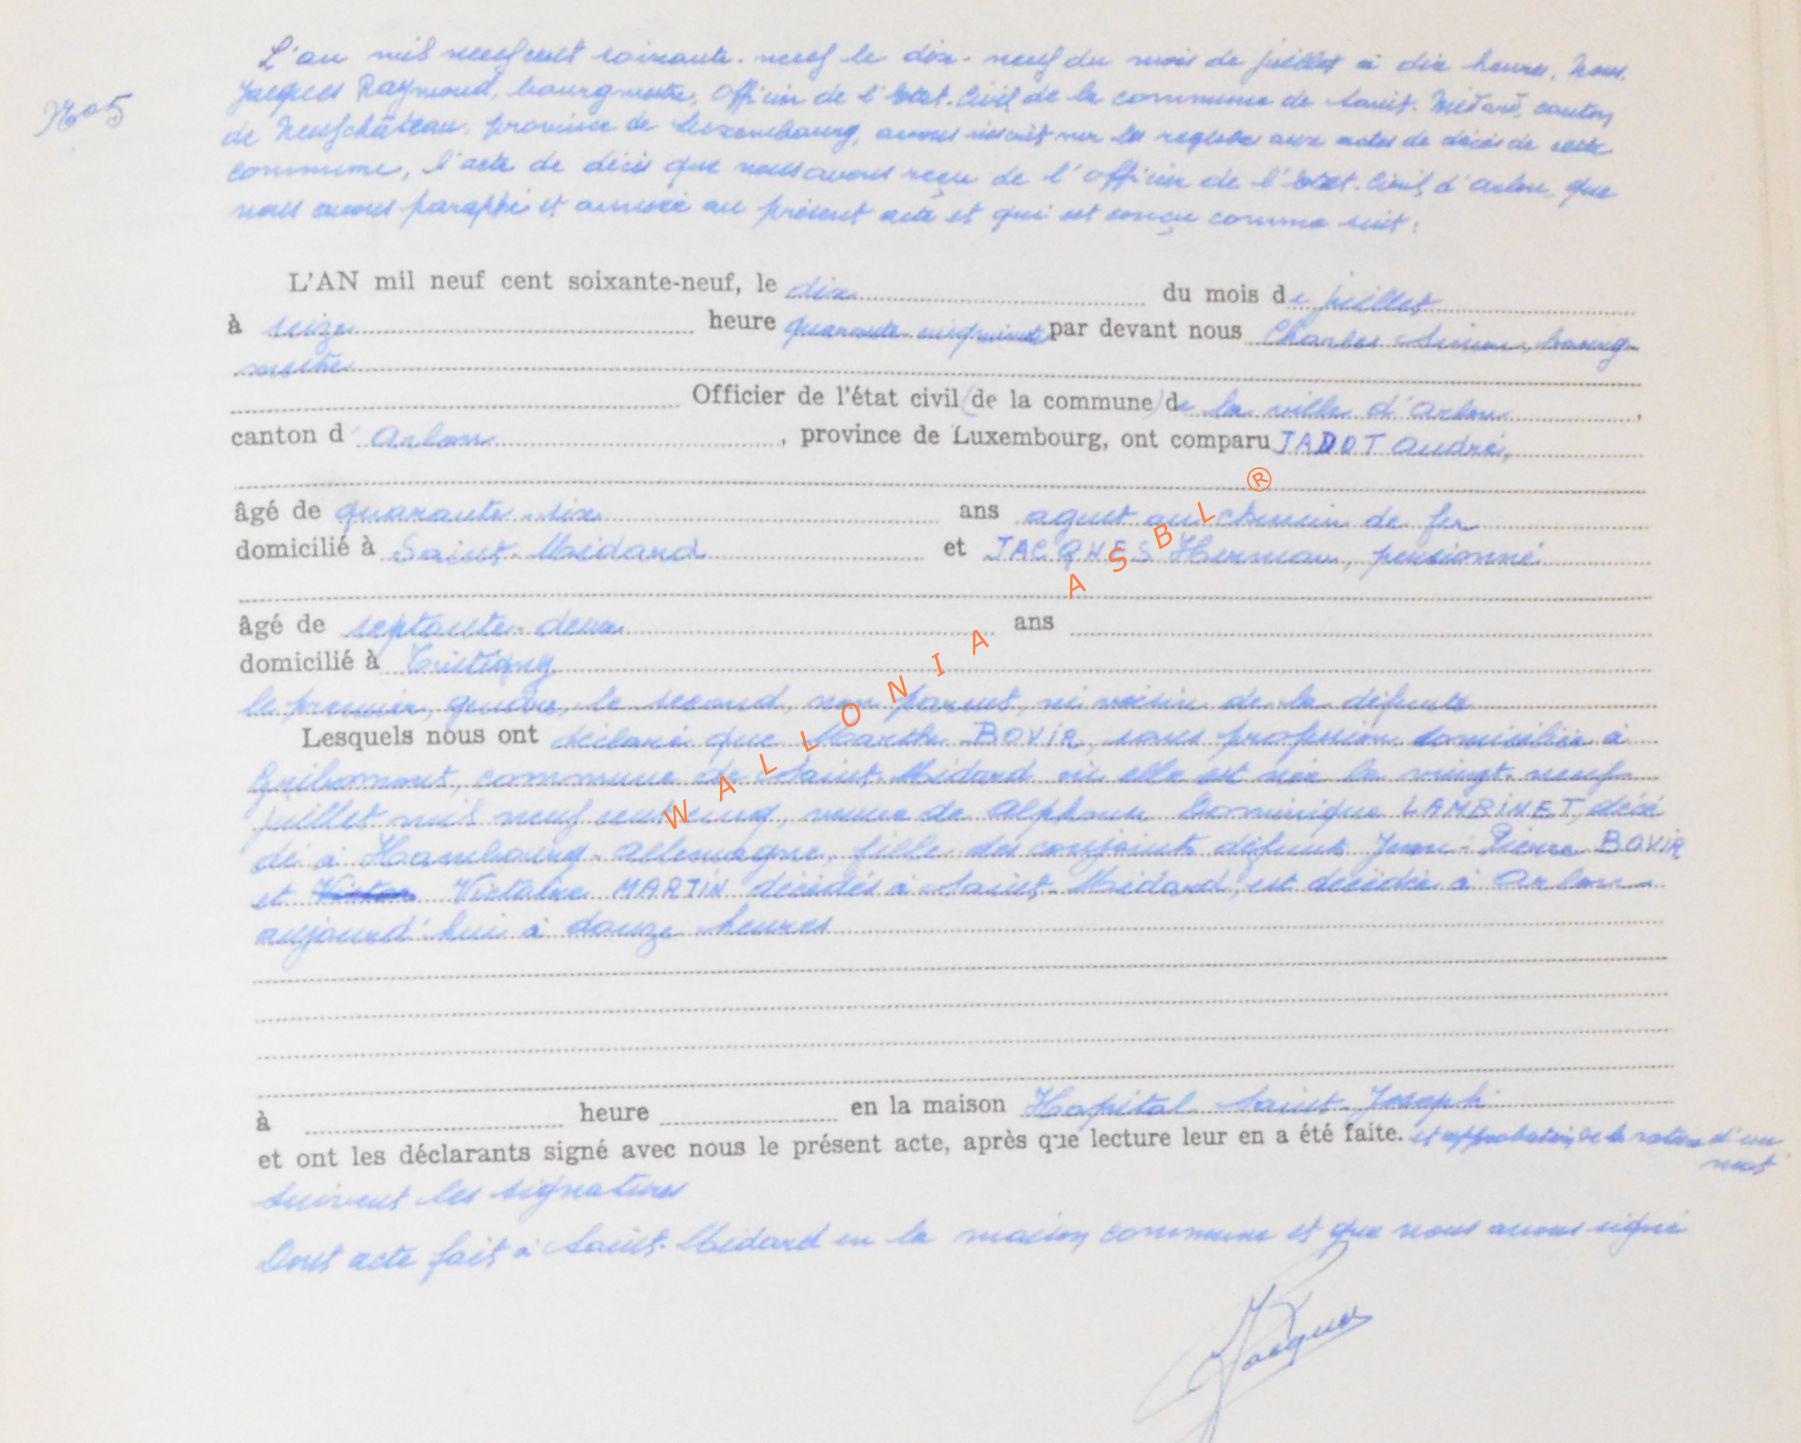 N° 5
L'an mil neuf cent soixante-neuf le dix-neuf du mois de juillet à dix heures, Nous
Jacques Raymond, bourgmestre, Officier de l'Etat-Civil de la commune de Saint-Médard, canton
de Neufchâteau, province de Luxembourg, avons inscrit sur les registres aux actes de décès de cette
commune, l'acte de décès que nous avons reçu de l'Officier de l'Etat-Civil d'Arlon, que
nous avons paraphé et annexé au présent acte et qui est conçu comme suit :
L'AN mil neuf cent soixante-neuf, le dix du mois de juillet
à seize heure quarante-cinq minutes par devant nous Charles Simon, bourg-
mestre
Officier de l'état civil (de la commune) de la ville d'Arlon,
canton d'Arlon, province de Luxembourg, ont comparu JADOT André,
âgé de quarante-six ans agent au chemin de fer
domicilié à Saint-Médard et JACQUES Herman, pensionné
âgé de septante-deux ans
domicilié à Tintigny
le premier, gendre, le second, non parent, ni voisin de la défunte
Lesquels nous ont déclaré que Marthe BOVIR, sans profession domiciliée à
Gribomont, commune de Saint-Médard où elle est née le vingt-neuf
juillet mil neuf cent cinq, veuve de Alphonse Dominique LAMBINET, décé
dé à Hambourg-Allemagne, fille des conjoints défunts Jean-Pierre BOVIR
et Victoire MARTIN décédés à Saint-Médard, est décédée à Arlon
aujourd'hui à douze heures
à heure en la maison Hopital Saint-Joseph
et ont les déclarants signé avec nous le présent acte, après que lecture leur en a été faite. et approbation de la rature d'un
mot
Suivent les signatures
Dont acte fait à Saint-Médard en la maison commune et que nous avons signé
Jacques
WALLONIA ASBL ®